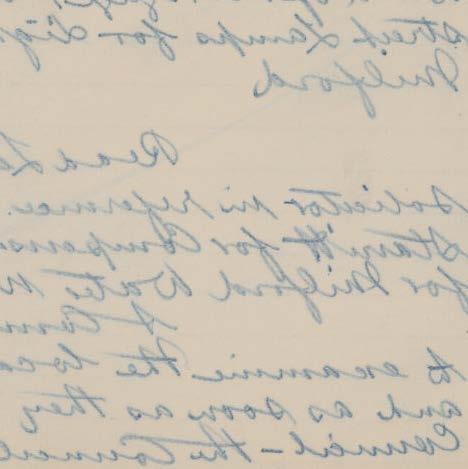 street Lamps for Ligh
Milford
Read Le
Solicitor in reference
for Compens
for Milford Water
A Com
to examine the loca
and as soon as they
Council - the Council